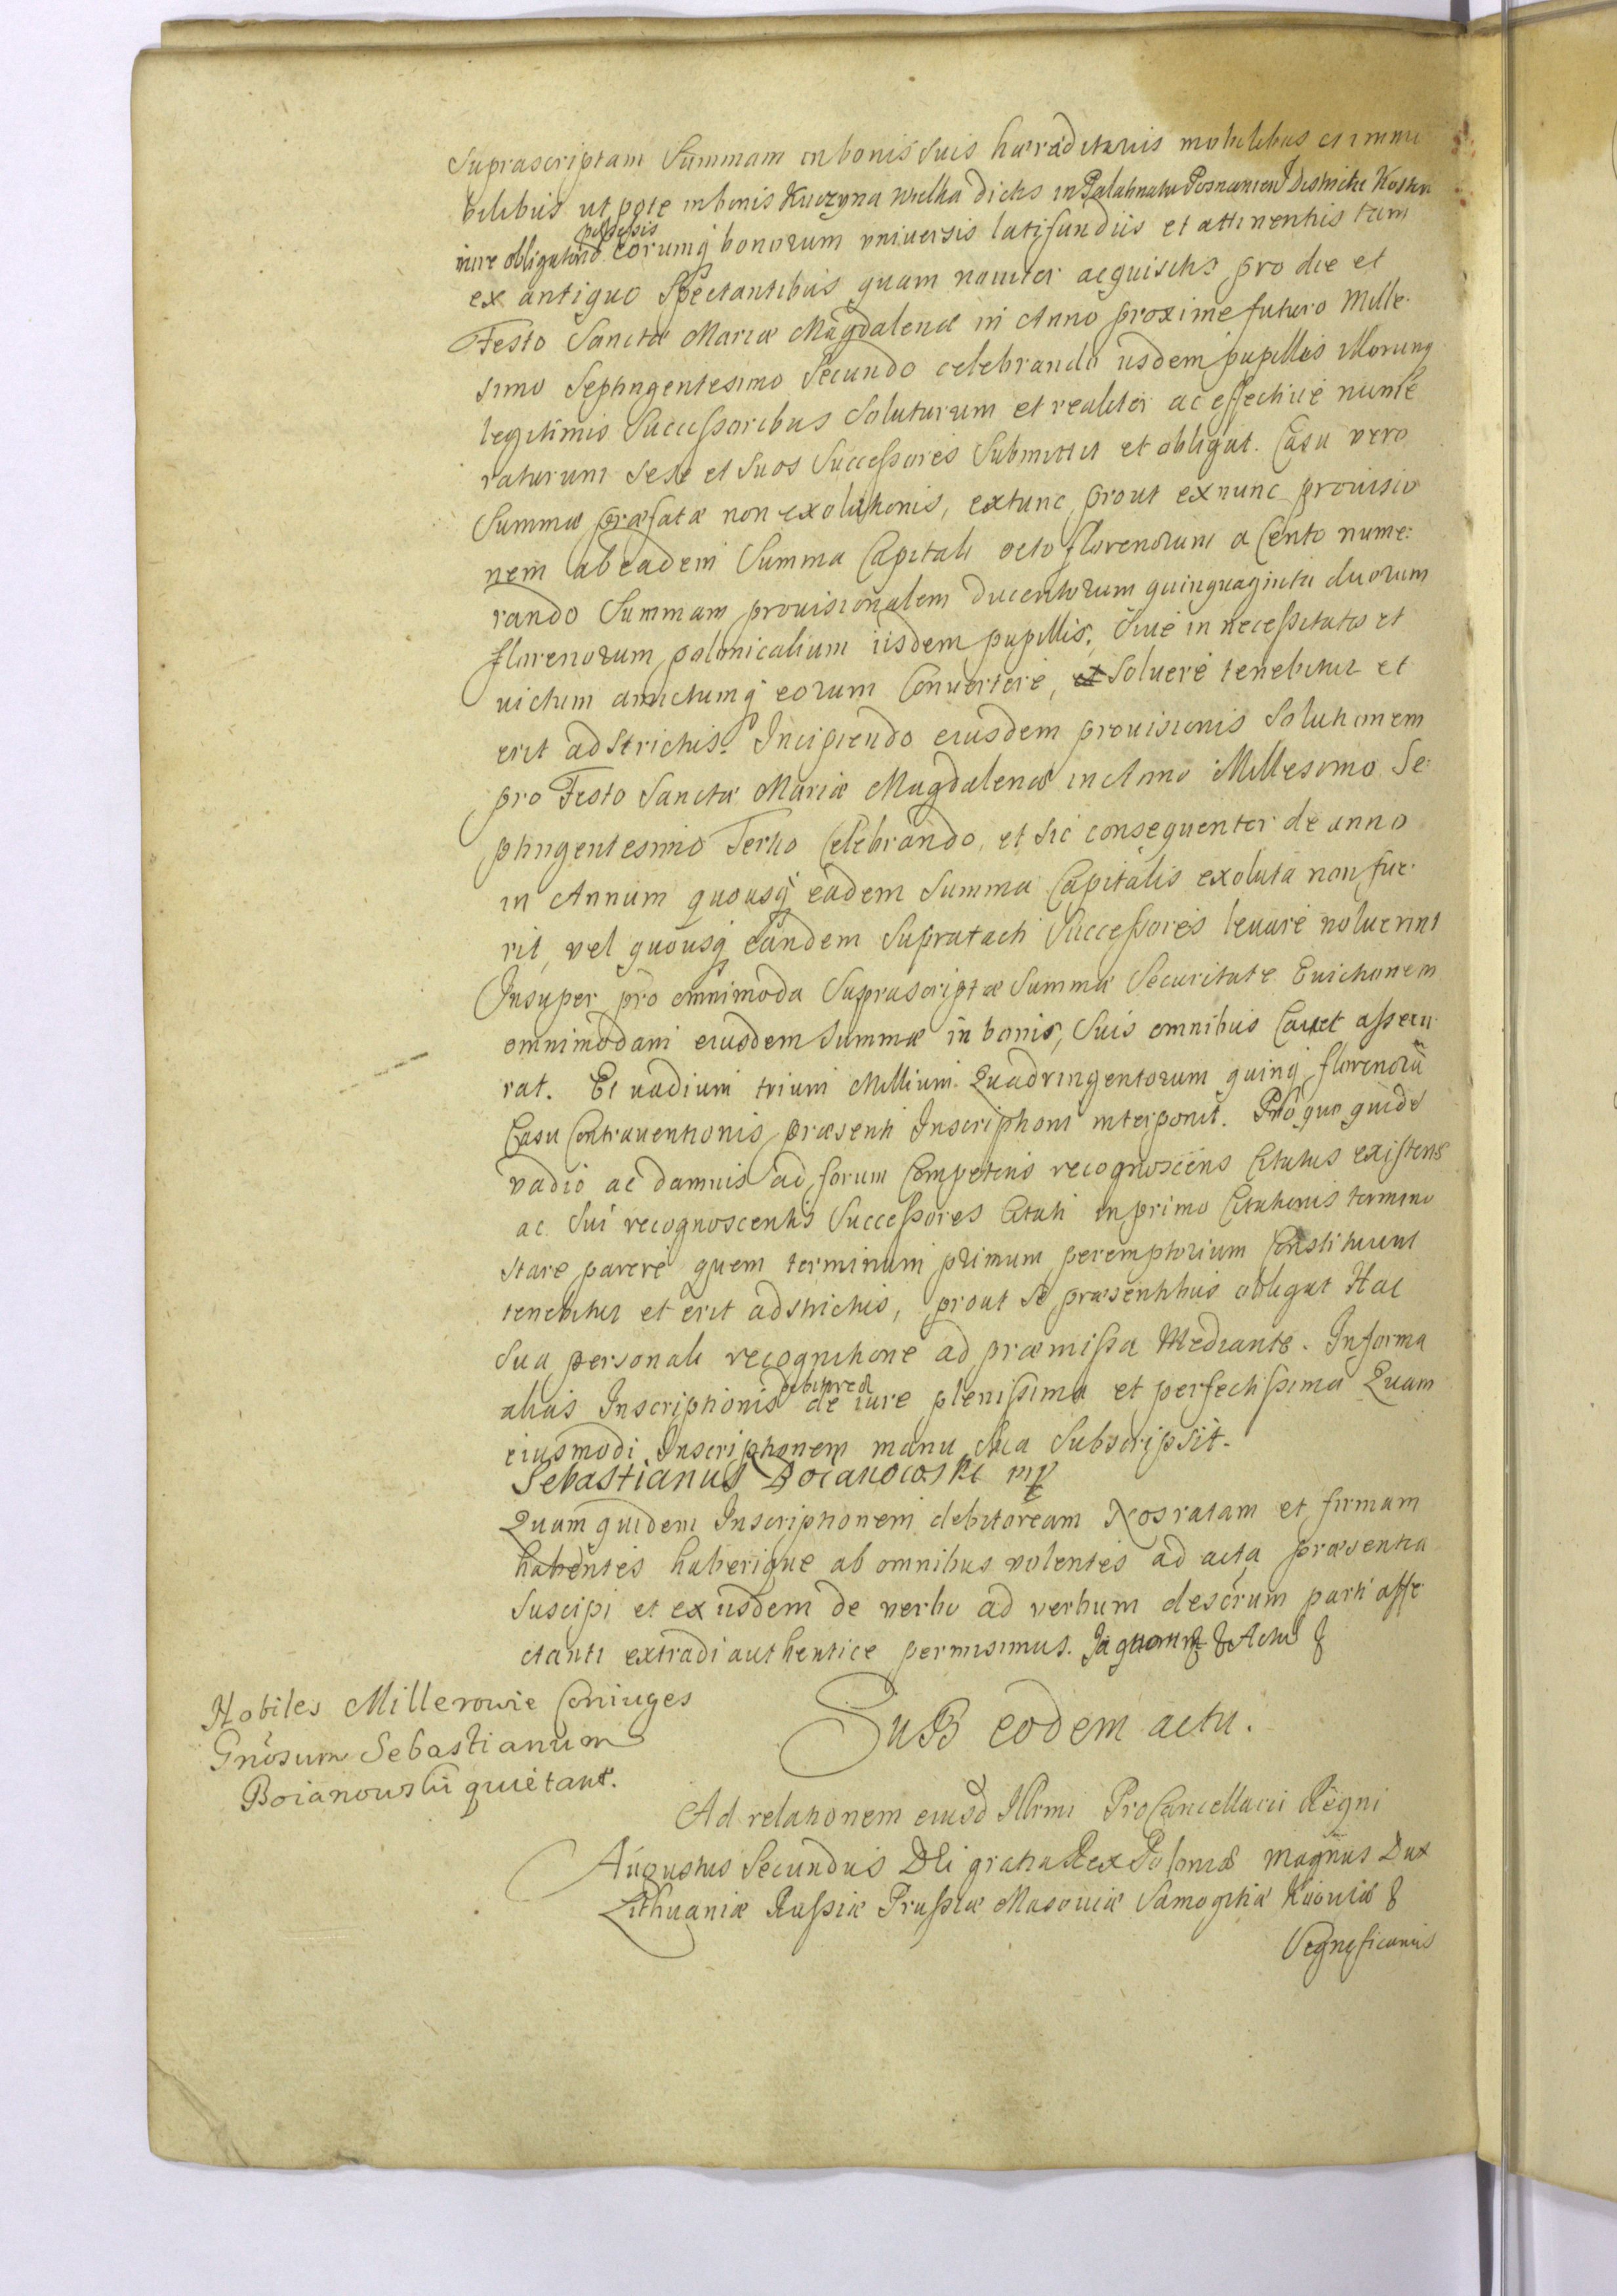 Suprascriptam Summam in bonis suis hæraditariis mobilibus et immo
bilibus ut pote in bonis Kuczyna wielka dictis in Palatinatu Posnanien Districtu Kosten
possessis
iure obligatorio eorumq bonorum vniuersis latifundiis et attinentiis tam
ex antiquo Spectantibus quam nouiter acquisitis pro die et
Festo Sanctæ Mariæ Magdalenæ in Anno proxime futuro Mille
simo Septingentesimo Secundo celebrando iisdem pupillis illorumq
legitimis Successoribus Soluturum et realiter ac effectiue nume
raturum sese et Suos Successores Submittit et obligat. Casu vero
Summæ præfatæ non exolutionis, extunc prout exnunc prouisio
nem ab eadem Summa Capitali octo florenorum a Cento nume:
rando Summam prouisionalem Ducentorum quinquaginta duorum
florenorum polonicalium iisdem pupillis, siue in necessitates et
victum amictumq eorum Conuertere, et Soluere tenebitur et
erit adstrictus. Incipiendo eiusdem prouisionis Solutionem
pro Festo Sanctæ Mariæ Magdalenæ in Anno Millesimo Se
ptingentesimo Tertio Celebrando, et sic consequenter de anno
in Annum quousq eadem Summa Capitalis exoluta non fue
rit, vel quousq eandem Supratacti Successores leuare noluerint
Insuper pro omnimoda Suprascriptæ Summæ Securitate Euictionem
omnimodam eiusdem Summæ in bonis, Suis omnibus Cauet assecu
rat. Et vadium trium Millium Quadringentorum quinq florenorū
Casu Contrauentionis præsenti Inscriptioni interponit. Pro quo quidē
vadio ac damnis ad forum Competens recognoscens Citatus existens
ac Sui recognoscentis Successores Citati in primo Citationis termino
stare parere quem terminum primum peremptorium Constituunt
tenebitur et erit adstrictus, prout se præsentibus obligat Hac
sua personali recognitione ad præmissa Mediante. In forma
debitoreæ
alias Inscriptionis de iure plenissima et perfectissima Quam
eiusmodi Inscriptionem manu sua Subscripsit.
Sebastianus Boianowski mp
Quam quidem Inscriptionem debitoream Nos ratam et firmam
habentes haberique ab omnibus volentes ad acta præsentia
suscipi et ex iisdem de verbo ad verbum descrum parti affe
ctanti extradi authentice permisimus. In quorum & Actū &
Nobiles Millerowie Coniuges
Gnosum Sebastianum
Boianowski quietant.
Sub eodem actu.
Ad relationem eiusd Illrmi ProCancellarii Regni
Augustus Secundus Dei gratia Rex Poloniæ Magnus Dux
Lithuaniæ Russiæ Prussiæ Masouiæ Samogitiæ Kiiouiæ &
Significamus